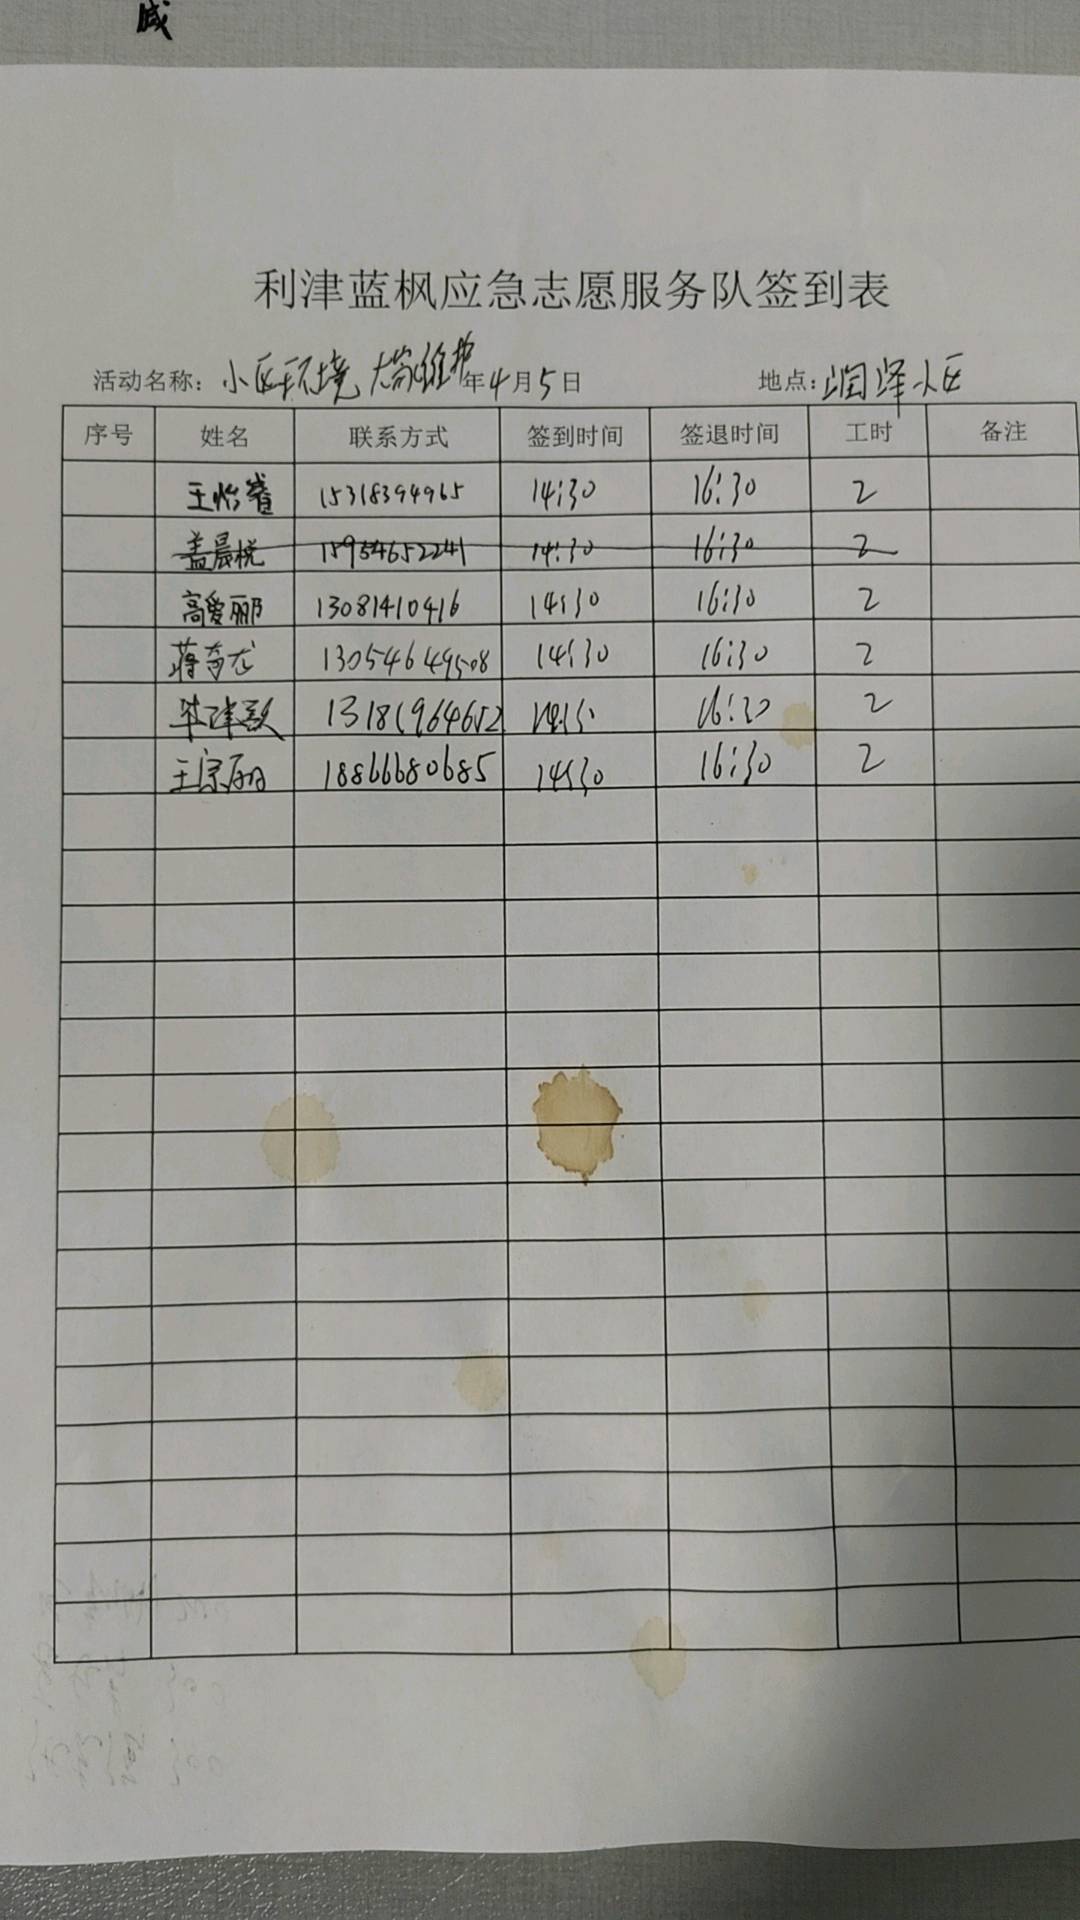 利津蓝枫应急志愿服务队签到表
活动名称：小区环境 维护 年4月5日 地点：润泽小区
序号 姓名 联系方式 签到时间 签退时间 工时 备注
王怡睿 15318394965 14:30 16:30 2
盖晨悦 15954652241 14:30 16:30 2
高爱丽 13081410416 14:30 16:30 2
蒋奇龙 13054649508 14:30 16:30 2
13181964652 16:30 2
王宗丽 18866680685 14:30 16:30 2